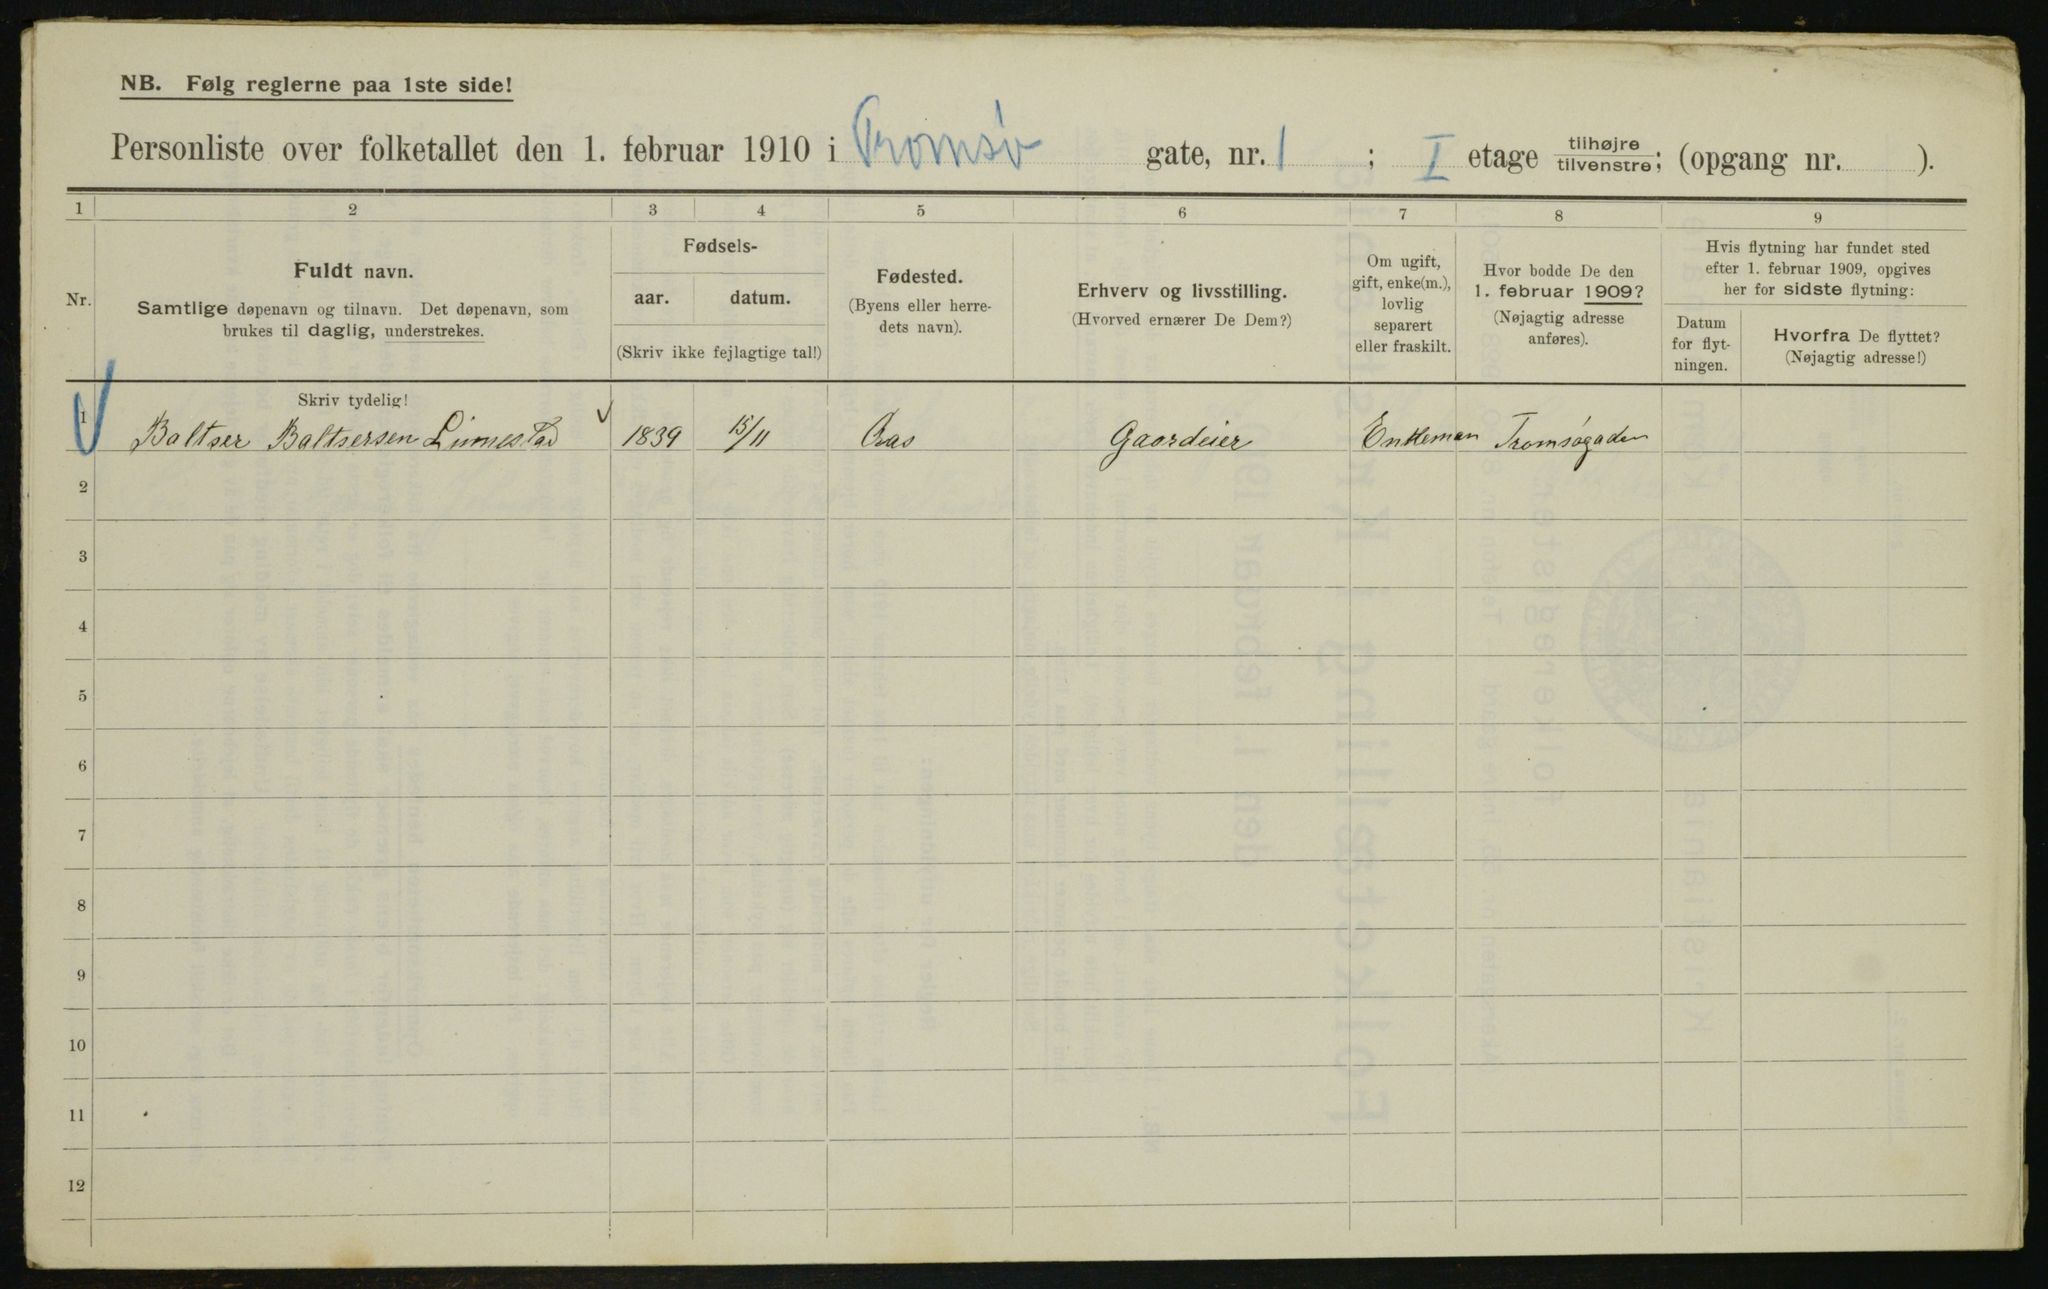 NB. Følg reglerne paa 1ste side!
Personliste over folketallet den 1. februar 1910 i Tromsø gate, nr. 1 ; I etage tilhøjre tilvenstre; (opgang nr. ).
1 2 3 4 5 6 7 8 9
Nr.
Fuldt navn.
Samtlige døpenavn og tilnavn. Det døpenavn, som
brukes til daglig, understrekes.
Fødsels-
aar. datum.
(Skriv ikke fejlagtige tal!)
Fødested.
(Byens eller herre-
dets navn).
Erhverv og livsstilling.
(Hvorved ernærer De Dem?)
Om ugift,
gift, enke(m.),
lovlig
separert
eller fraskilt.
Hvor bodde De den
1. februar 1909?
(Nøjagtig adresse
anføres).
Hvis flytning har fundet sted
efter 1. februar 1909, opgives
her for sidste flytning:
Datum
for flyt-
ningen.
Hvorfra De flyttet?
(Nøjagtig adresse!)
Skriv tydelig!
1 Baltser Baltsersen 1839 15/11 Aas Gaardeier Enkeman Tromsøgaden
2
3
4
5
6
7
8
9
10
11
12